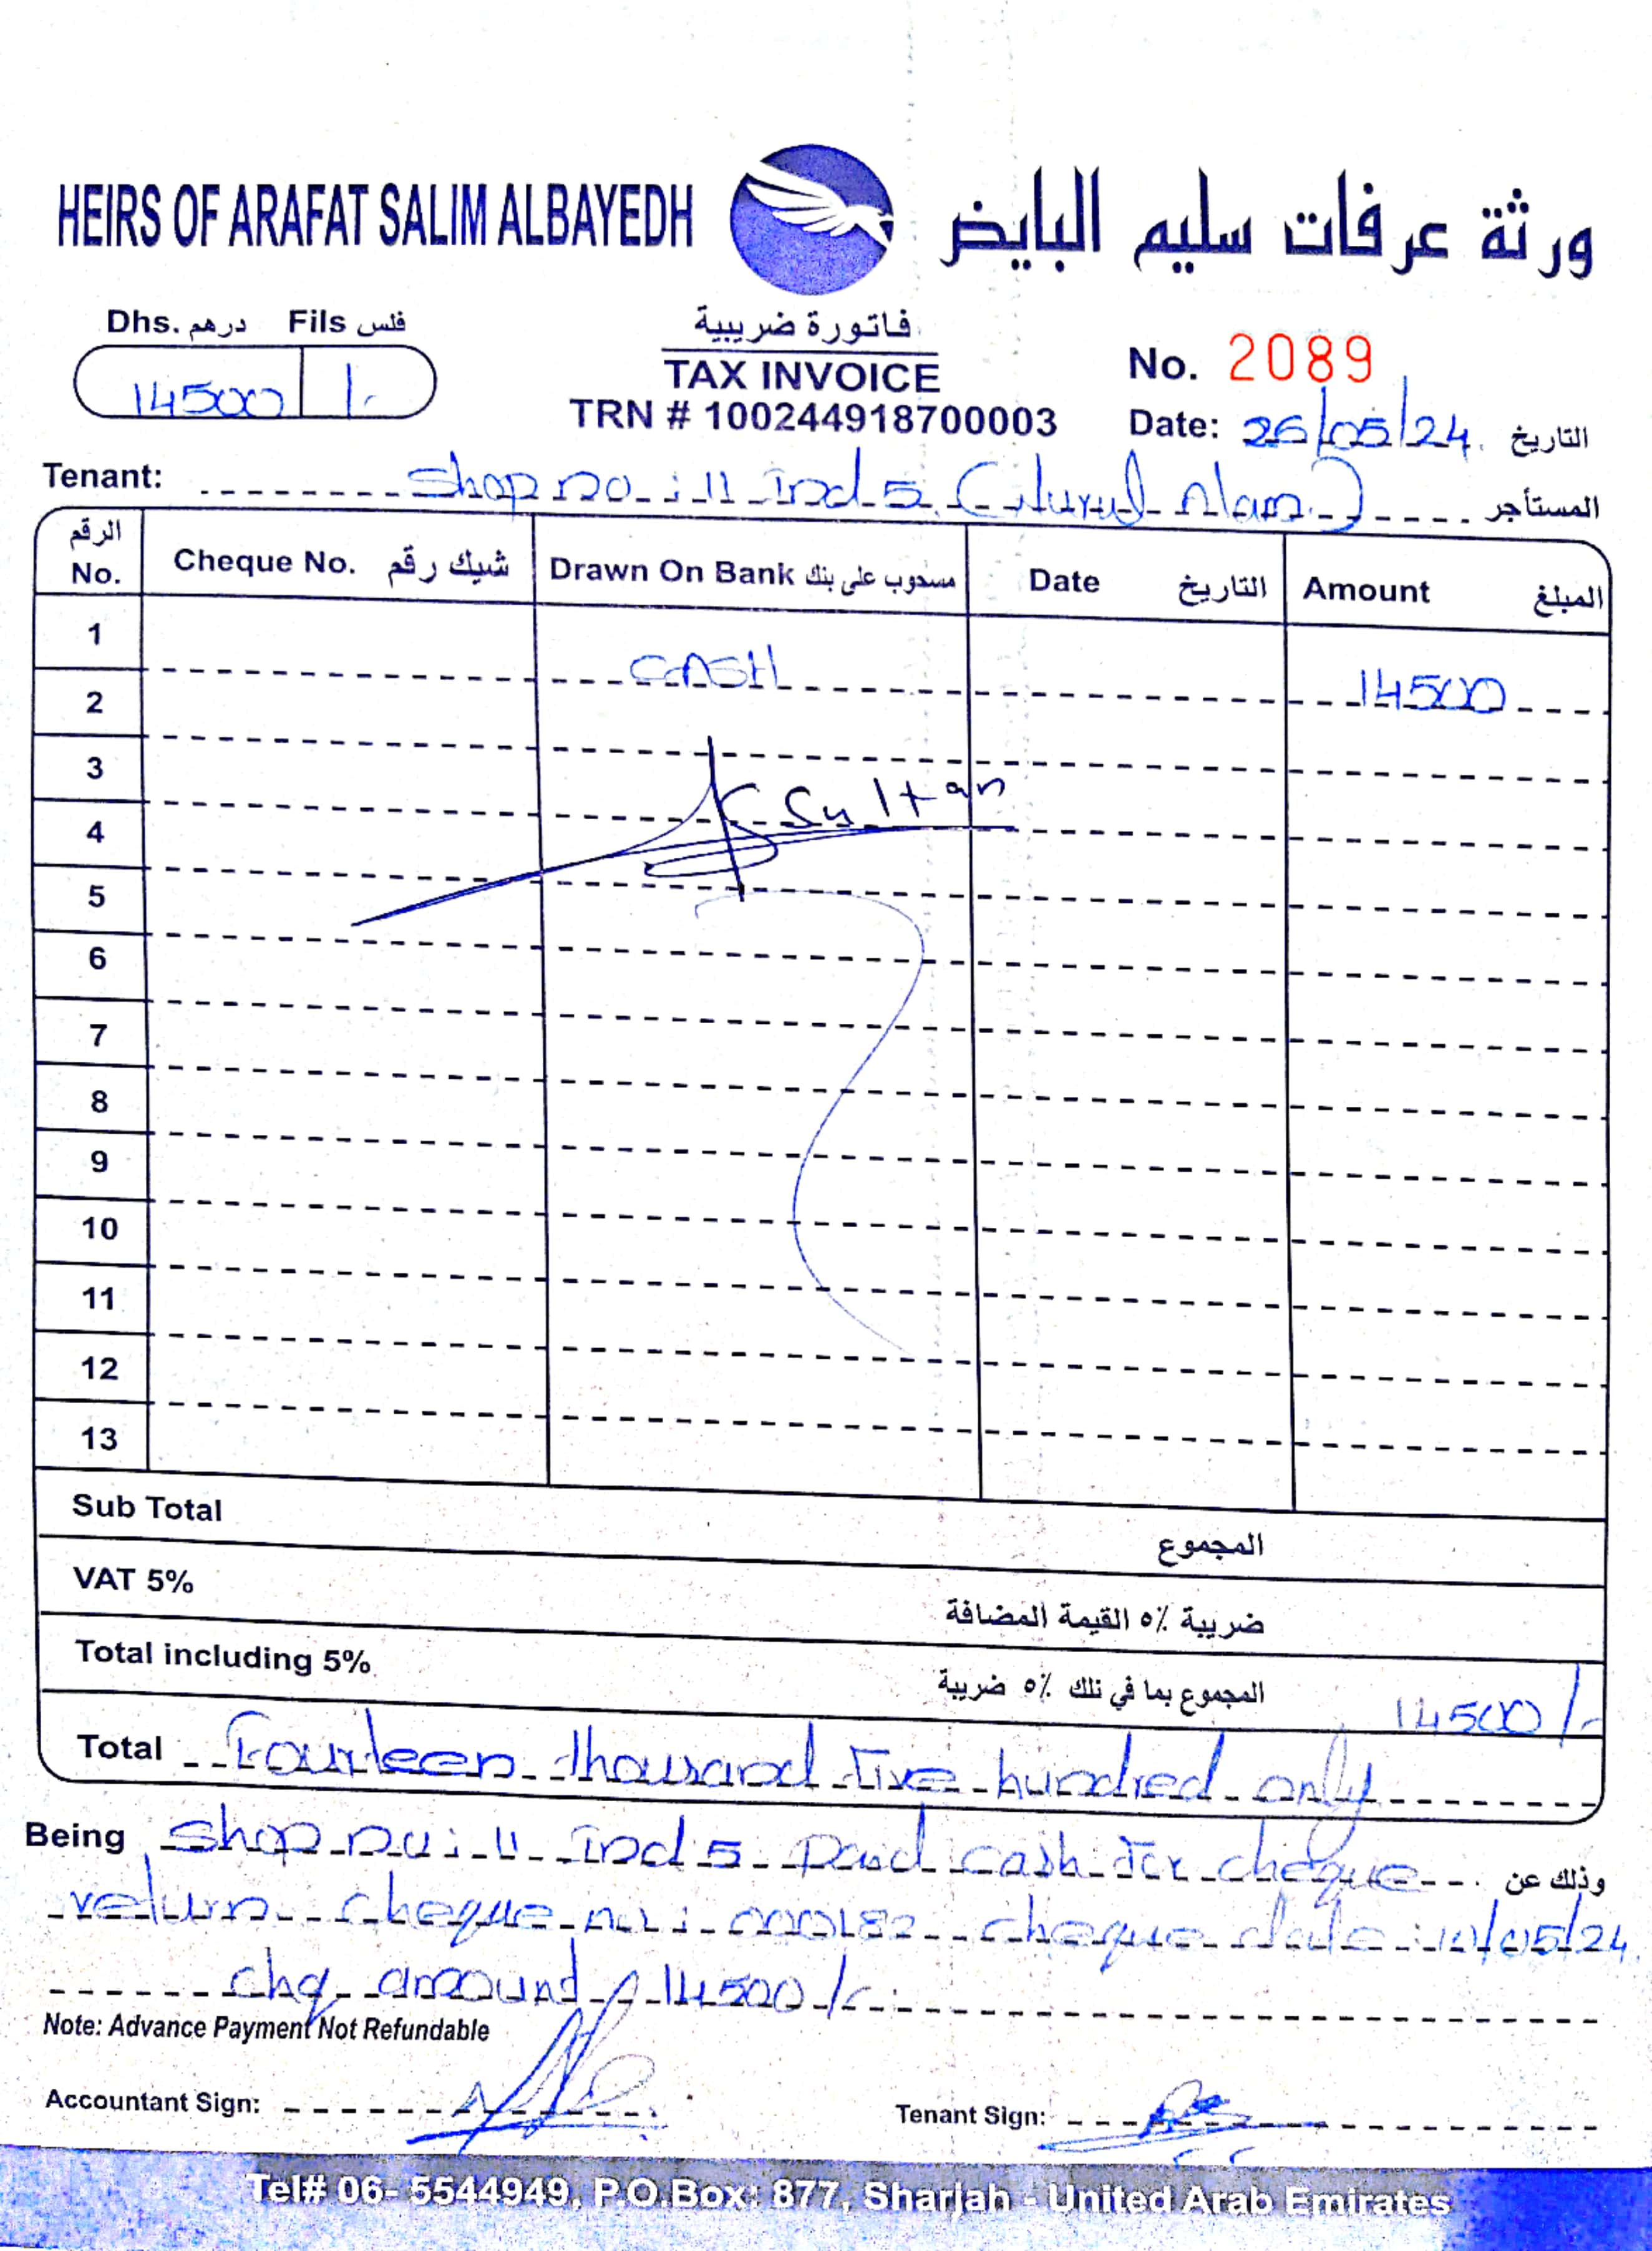 HEIRS OF ARAFAT SALIM ALBAYEDH ورثة عرفات سليم البايض
Dhs. درهم Fils فلس
14500 /-
فاتورة ضريبية
TAX INVOICE
TRN # 100244918700003
No. 2089
Date: 26/05/24 التاريخ
Tenant: Shop no: 11 Ind 5 (Nurul Alam) المستأجر
الرقم No. Cheque No. شيك رقم Drawn On Bank مسحوب على بنك Date التاريخ Amount المبلغ
1 CASH 14500
2
3
Sultan
4
5
6
7
8
9
10
11
12
13
Sub Total المجموع
VAT 5% ضريبة ٥٪ القيمة المضافة
Total including 5% المجموع بما في تلك ٥٪ ضريبة 14500/-
Total Fourteen thousand five hundred only
Being Shop no: 11 Ind 5 paid cash for cheque وذلك عن
return cheque no: 000182 cheque date: 10/05/24
chq amound 14500/-
Note: Advance Payment Not Refundable
Accountant Sign: Tenant Sign:
Tel# 06- 5544949, P.O.Box: 877, Sharjah - United Arab Emirates